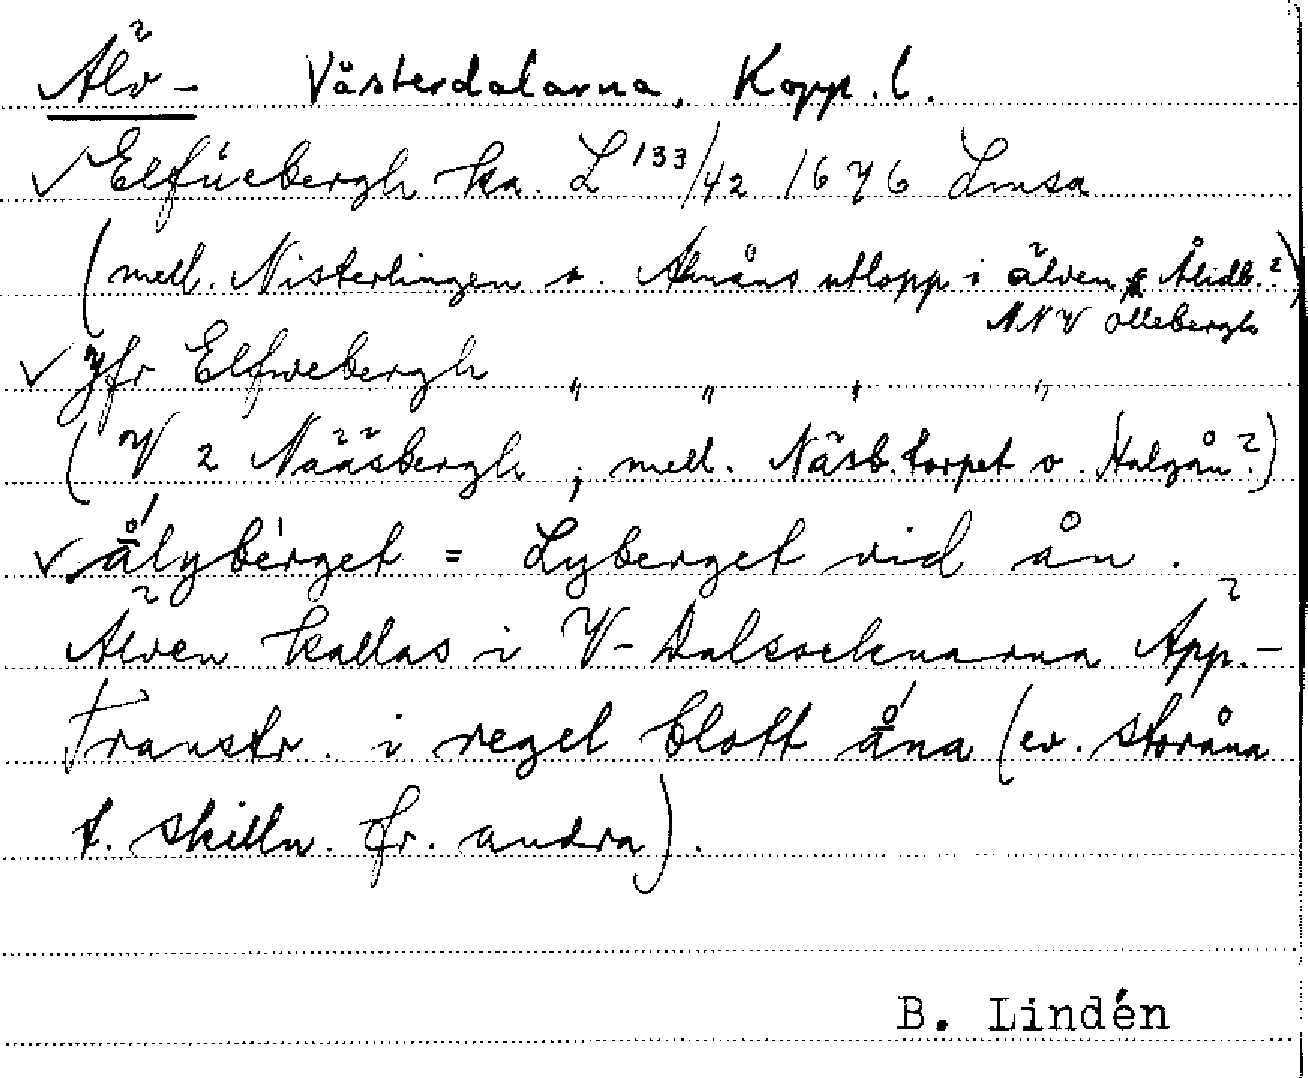 Älv- Västerdalarna, Kopp. l.
Elfüebergh ka. L 133/42 1676 Lmsa
(mell. Nisterlingen o. Almåns utlopp i älven, Ålidb.?)
NNV Ollebergh
Jfr Elfwebergh " " " "
(V 2 Nääsbergh ; mell. Näsb. torpet o. Halgån?)
ålyberget = Lyberget vid ån.
Älven kallas i V-Dalsocknarna Äpp.-
Transtr. i regel blott åna (ev. Storåna
t. skilln. fr. andra).
B. Lindén